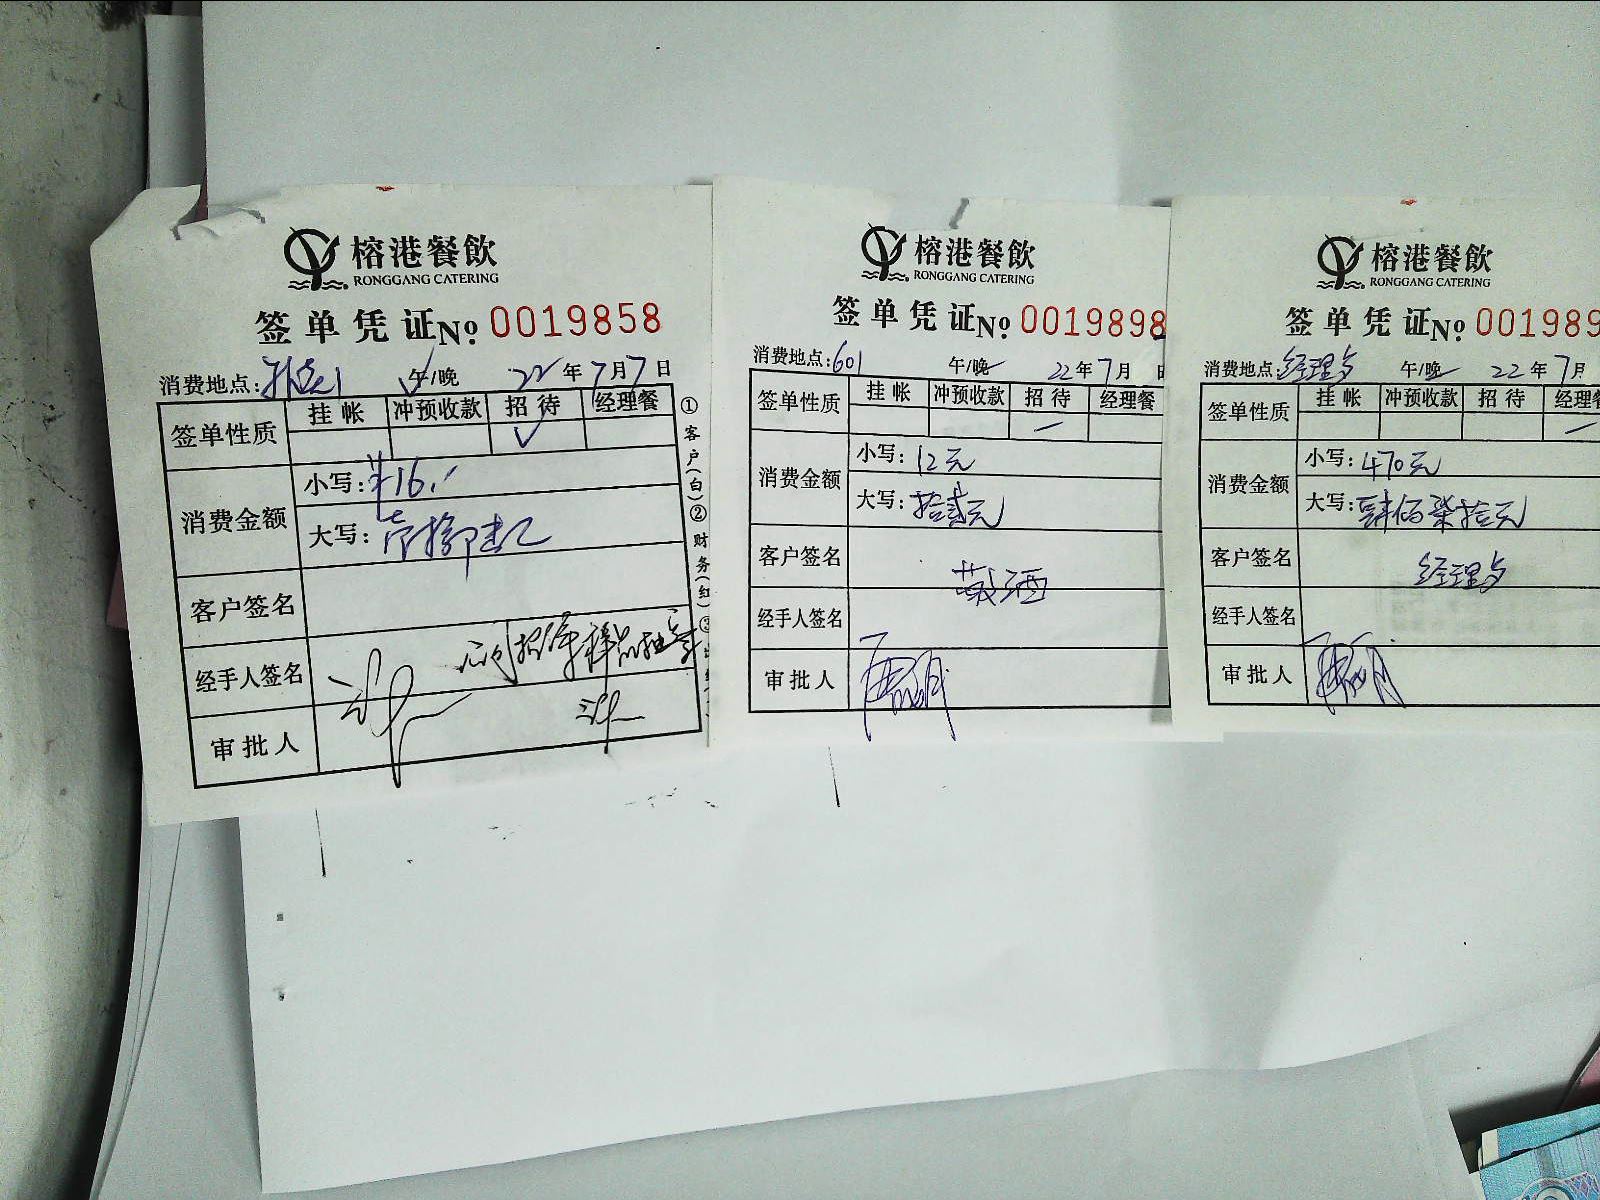 榕港餐飲
RONGGANG CATERING
签单凭证 No. 0019858
消费地点: 午/晚 22年7月7日
签单性质 挂帐 冲预收款 招待 经理餐
✓
消费金额
小写: ¥16.
大写:
客户签名
经手人签名
审批人
①客户(白)②财务(红)③
榕港餐飲
RONGGANG CATERING
签单凭证 No. 0019898
消费地点: 601 午/晚 22年7月 日
签单性质 挂帐 冲预收款 招待 经理餐
消费金额
小写: 12元
大写: 拾贰元
客户签名
经手人签名
审批人
榕港餐飲
RONGGANG CATERING
签单凭证 No. 001989
消费地点: 经理 午/晚 22年7月
签单性质 挂帐 冲预收款 招待 经理餐
消费金额
小写: 470元
大写: 肆佰柒拾元
客户签名 经理
经手人签名
审批人